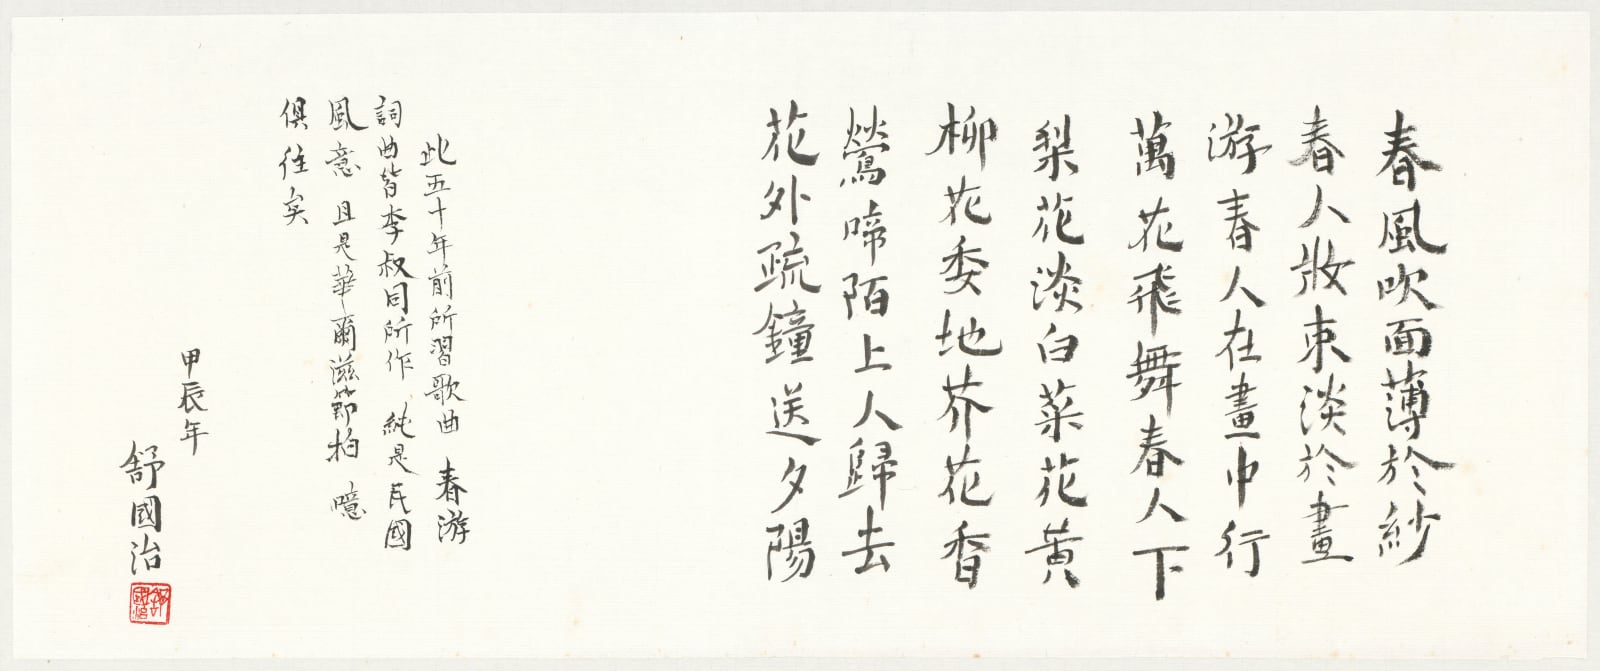 春風吹面薄於紗
春人妝束淡於畫
游春人在畫中行
萬花飛舞春人下
梨花淡白菜花黃
柳花委地芥花香
鶯啼陌上人歸去
花外疏鐘送夕陽
此五十年前所習歌曲 春游
詞曲皆李叔同所作 純是民國
風意 且是華爾滋節拍 噫
俱往矣
甲辰年
舒國治
舒國治